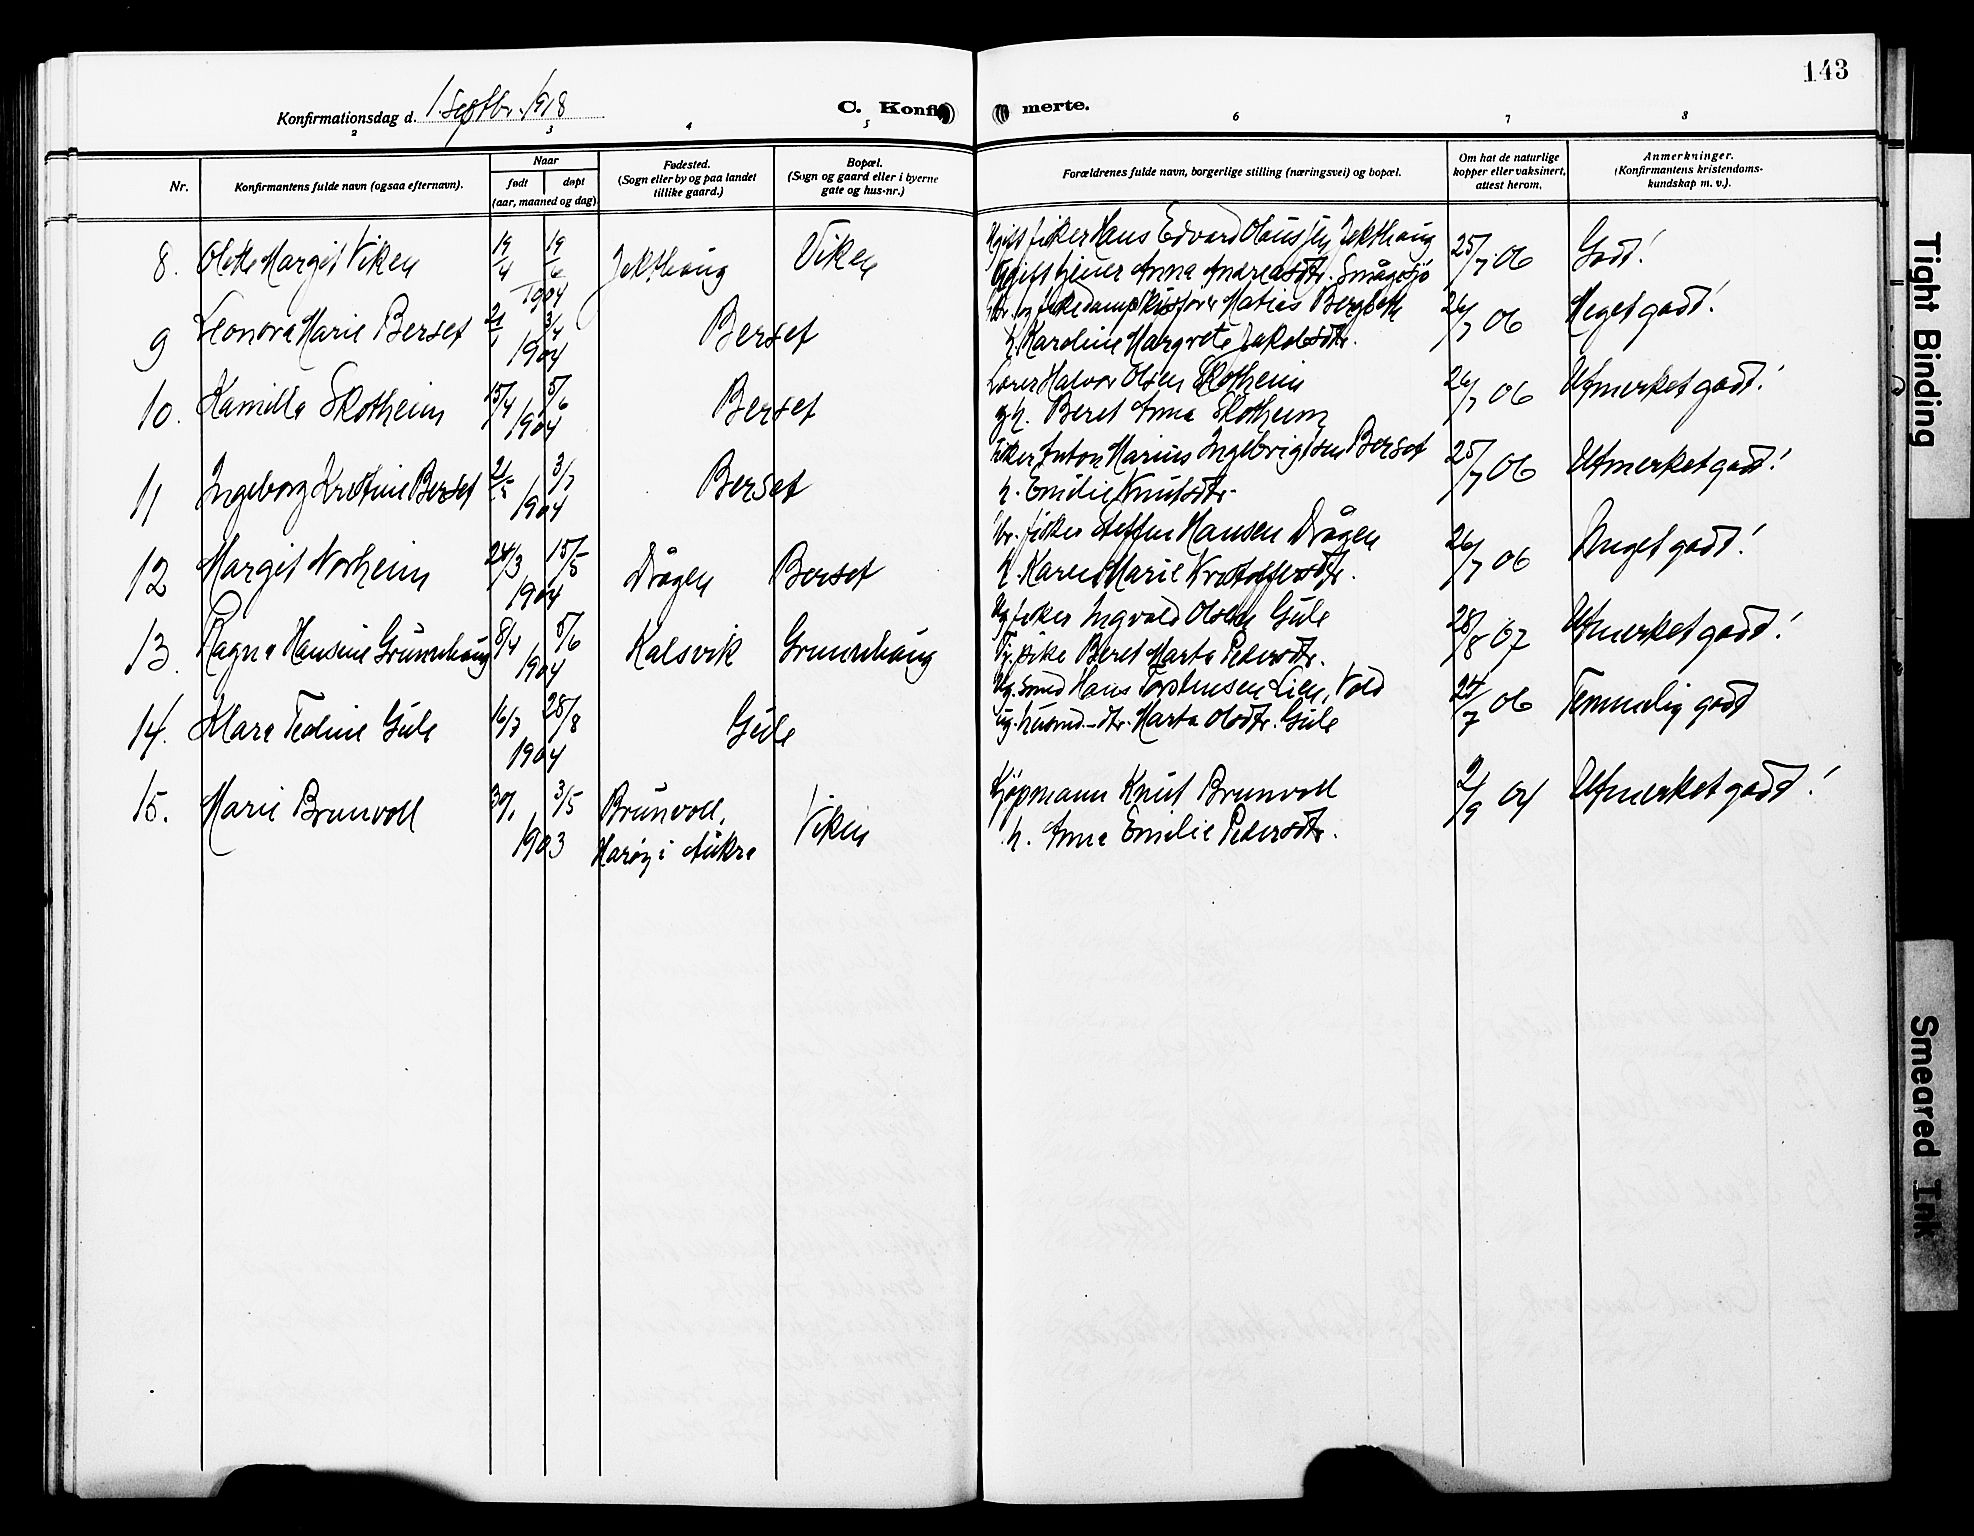 143
Konfirmationsdag d. 1 septbr. 1918
C. Konfirmerte.
2 3 4 5 6 7 8
Nr.
Konfirmantens fulde navn (ogsaa efternavn).
Naar
født døpt
(aar, maaned og dag)
Fødested.
(Sogn eller by og paa landet
tillike gaard.)
Bopæl.
(Sogn og gaard eller i byerne
gate og hus-nr.)
Forældrenes fulde navn, borgerlige stilling (næringsvei) og bopæl.
Om hat de naturlige
kopper eller vaksinert,
attest herom.
Anmerkninger.
(Konfirmantens kristendoms-
kundskap m. v.).
8. Margit Viken 19/4 19/6 1904 Jekthaug Viken
fisker Hans Edvard Jekthaug
Anna Andreasdtr. Smågesjø
25/7 06 Godt!
9 Leonora Marie Berset 3/4 1904 Berset
Matias
h. Karoline Margrete Jakobsdtr.
26/7 06 Meget godt!
10. Kamilla Skotheim 15/4 5/6 1904 Berset
Lærer Halvor Olsen Skotheim
h. Beret Anna Skotheim
26/7 06 Utmerket godt!
11 Ingeborg Kristine Berset 21/5 3/7 1904 Berset
fisker Anton Marius Ingebrigtsen Berset
h. Emilie Knutsdtr.
25/7 06 Utmerket godt!
12 Margit Norheim 24/3 15/5 1904 Drågen Berset
fisker Steffen Hansen Drågen
h. Karen Marie Kristoffersdtr.
26/7 06 Meget godt!
13. Ragna Hansine Grünnhaug 8/4 5/6 1904 Kalsvik Grunnhaug
Ug. fisker Ingvald Olsen Gule
Ug. pike Beret Marta Pedersdtr.
28/8 07 Utmerket godt!
14. Klara Tedine Gule 16/7 28/8 1904 Gule
Ug. Hans Torstensen Lien, Vold
ug. dtr. Marta Olsdtr. Gule
24/7 06 Temmelig godt
15. Marie Brunvoll 30/1 3/5 1903 Brunvoll, Viken
Harøy i Aukra
Kjøpmann Knut Brunvoll
h. Anna Emilie Pedersdtr.
2/9 04 Utmerket godt!
Tight Binding
Smeared Ink